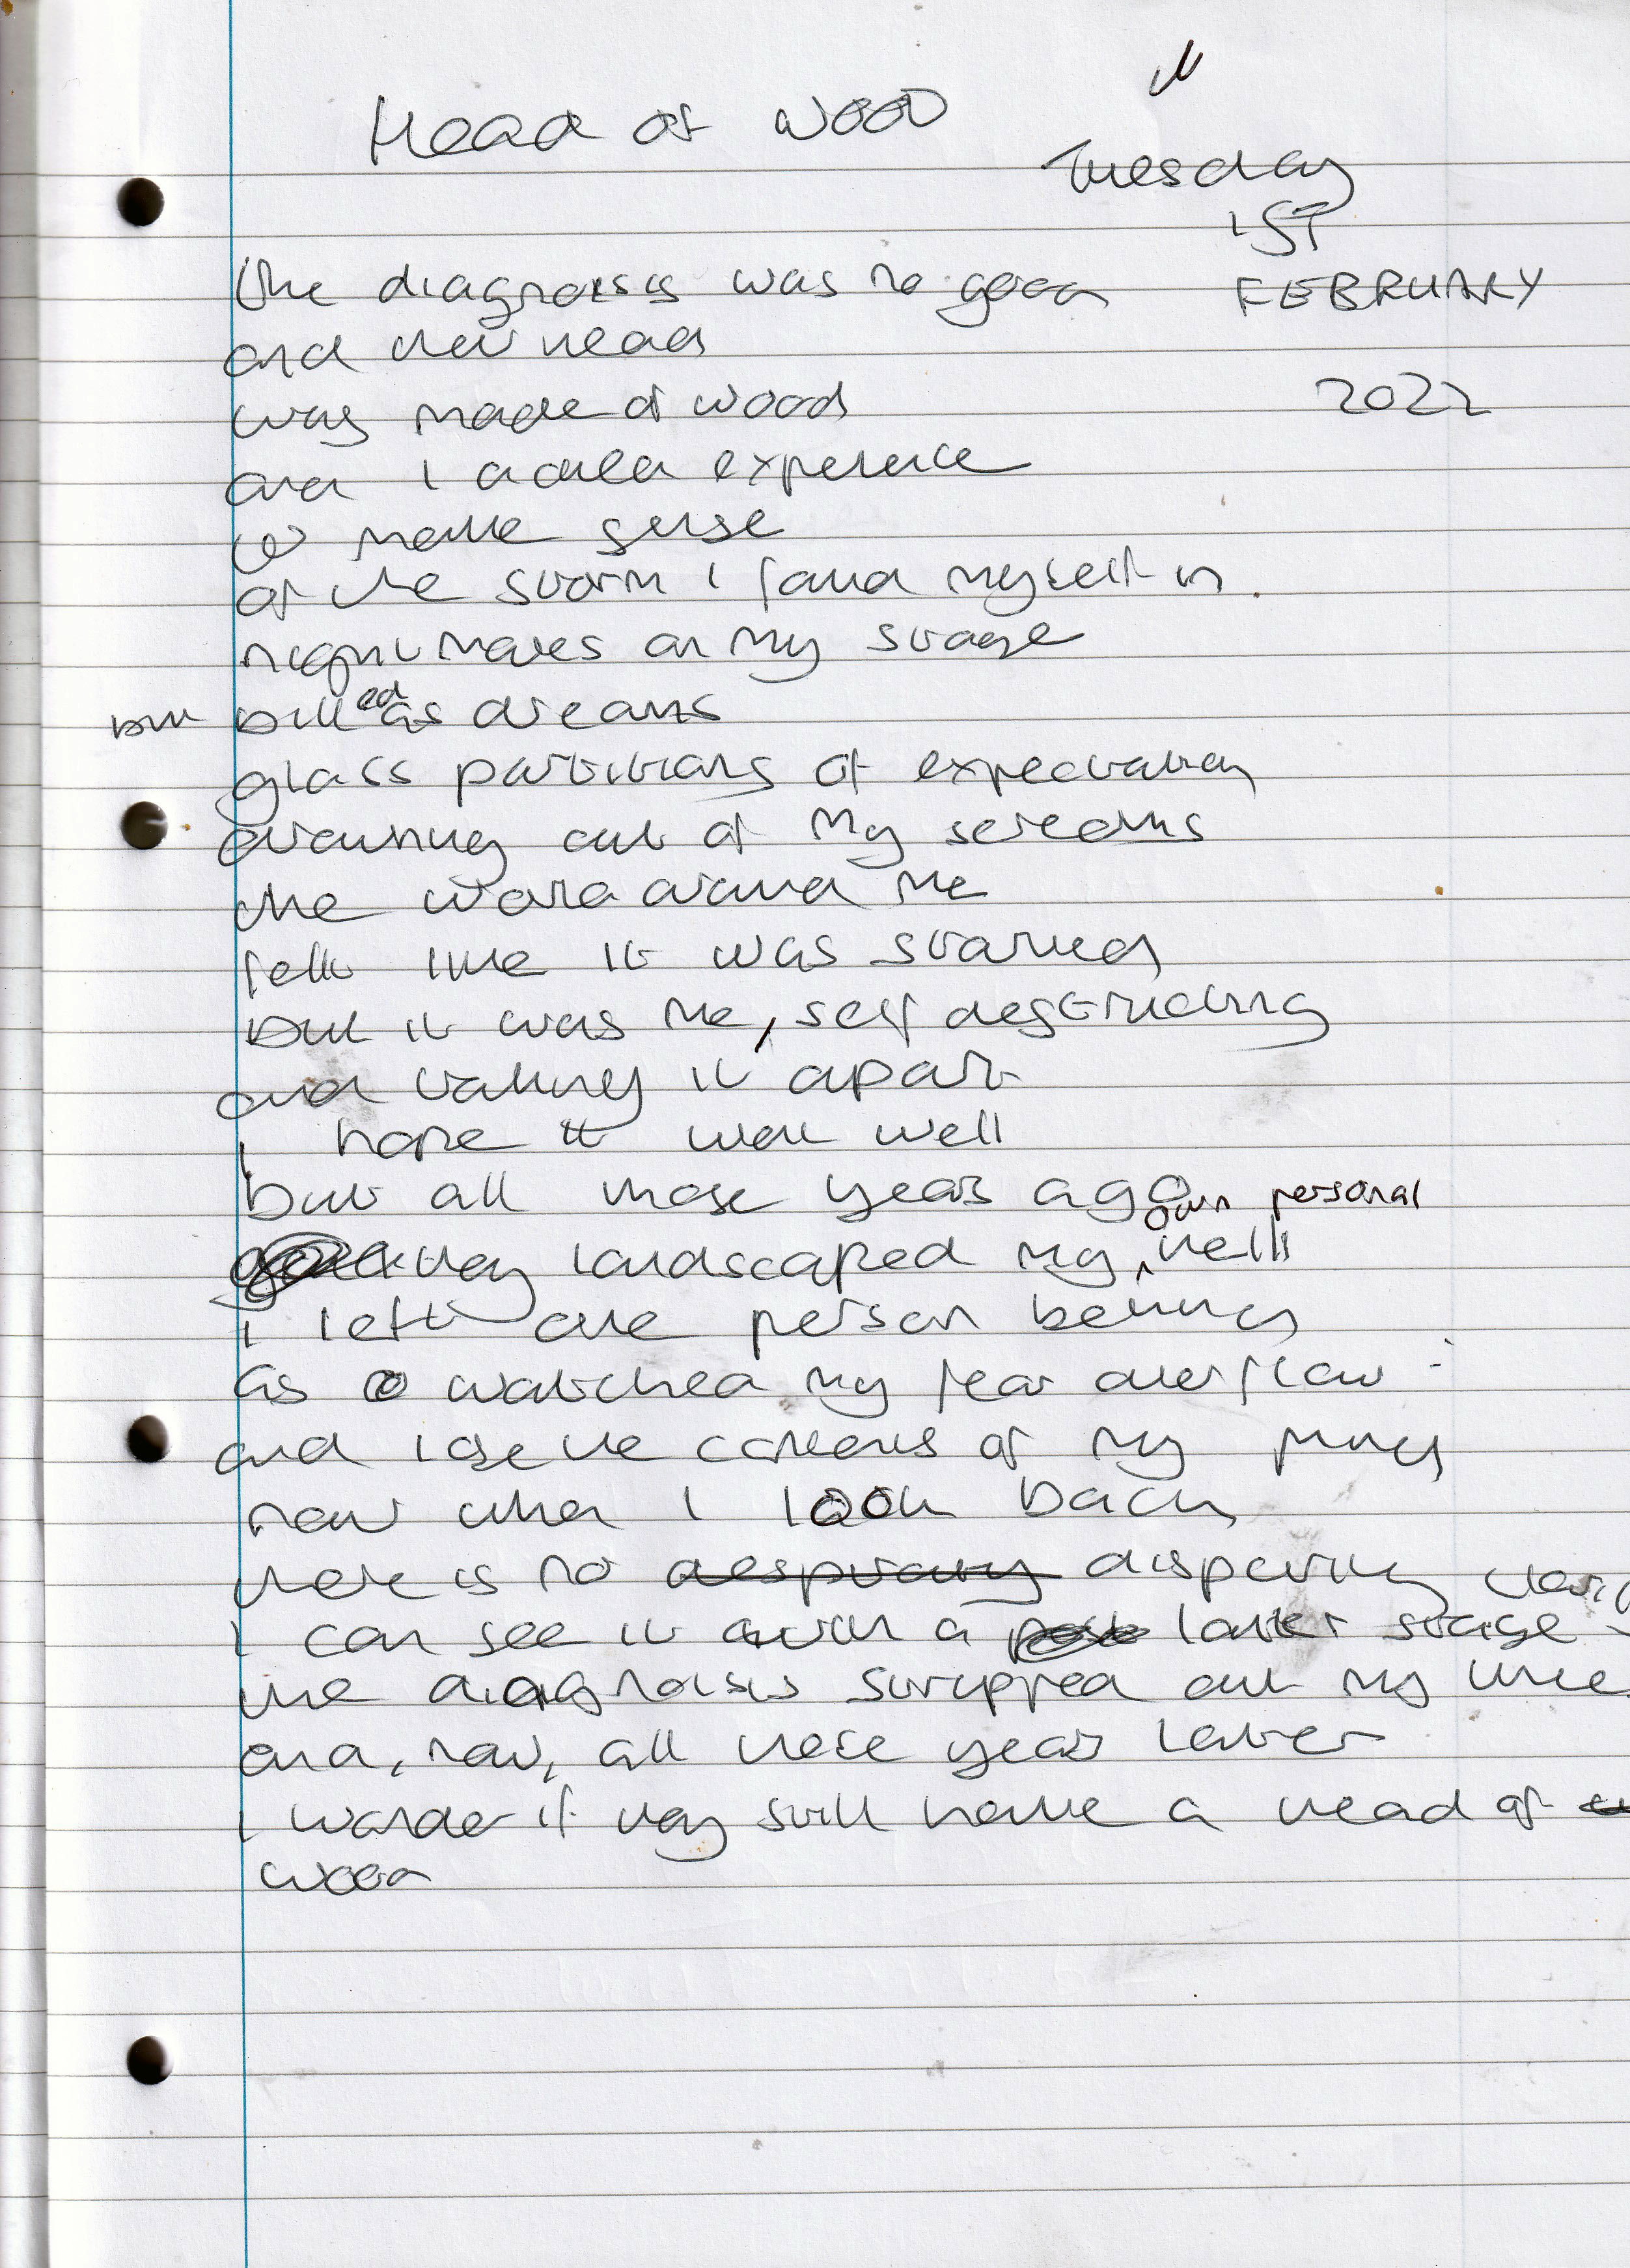 Head of wood
Tuesday
1ST
FEBRUARY
2022
the diagnosis was no good
and their head
was made of wood
and I added experience
to make sense
of the storm I found myself in
nightmares on my stage
but billed as dreams
glass partitions of expectation
drowning out of my screams
the world around me
felt like it was staring
but it was me, self destructing
and taking it apart
I hope it went well
but all those years ago
they landscaped my own personal hell
I left one person behind
as watched my fear overflow
and lose the contents of my mind
now when I look back
there is no despirating disputing
I can see it with a later stage
the diagnosis stripped out my
and, now, all these years later
I wonder if they still have a head of
wood